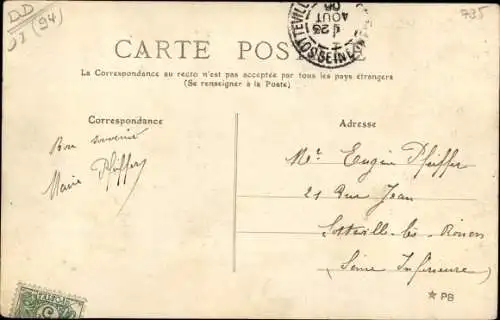 DD
(94)
735
CARTE POSTALE
SOTTEVILLE
23
AOUT
06
La Correspondance au recto n'est pas acceptée par tous les pays étrangers
(Se renseigner à la Poste)
Correspondance
Bon souvenir
Marie Pfeiffer
Adresse
Mr Eugène Pfeiffer
21 Rue Jean
Sotteville-lès-Rouen
(Seine Inférieure)
PB
5